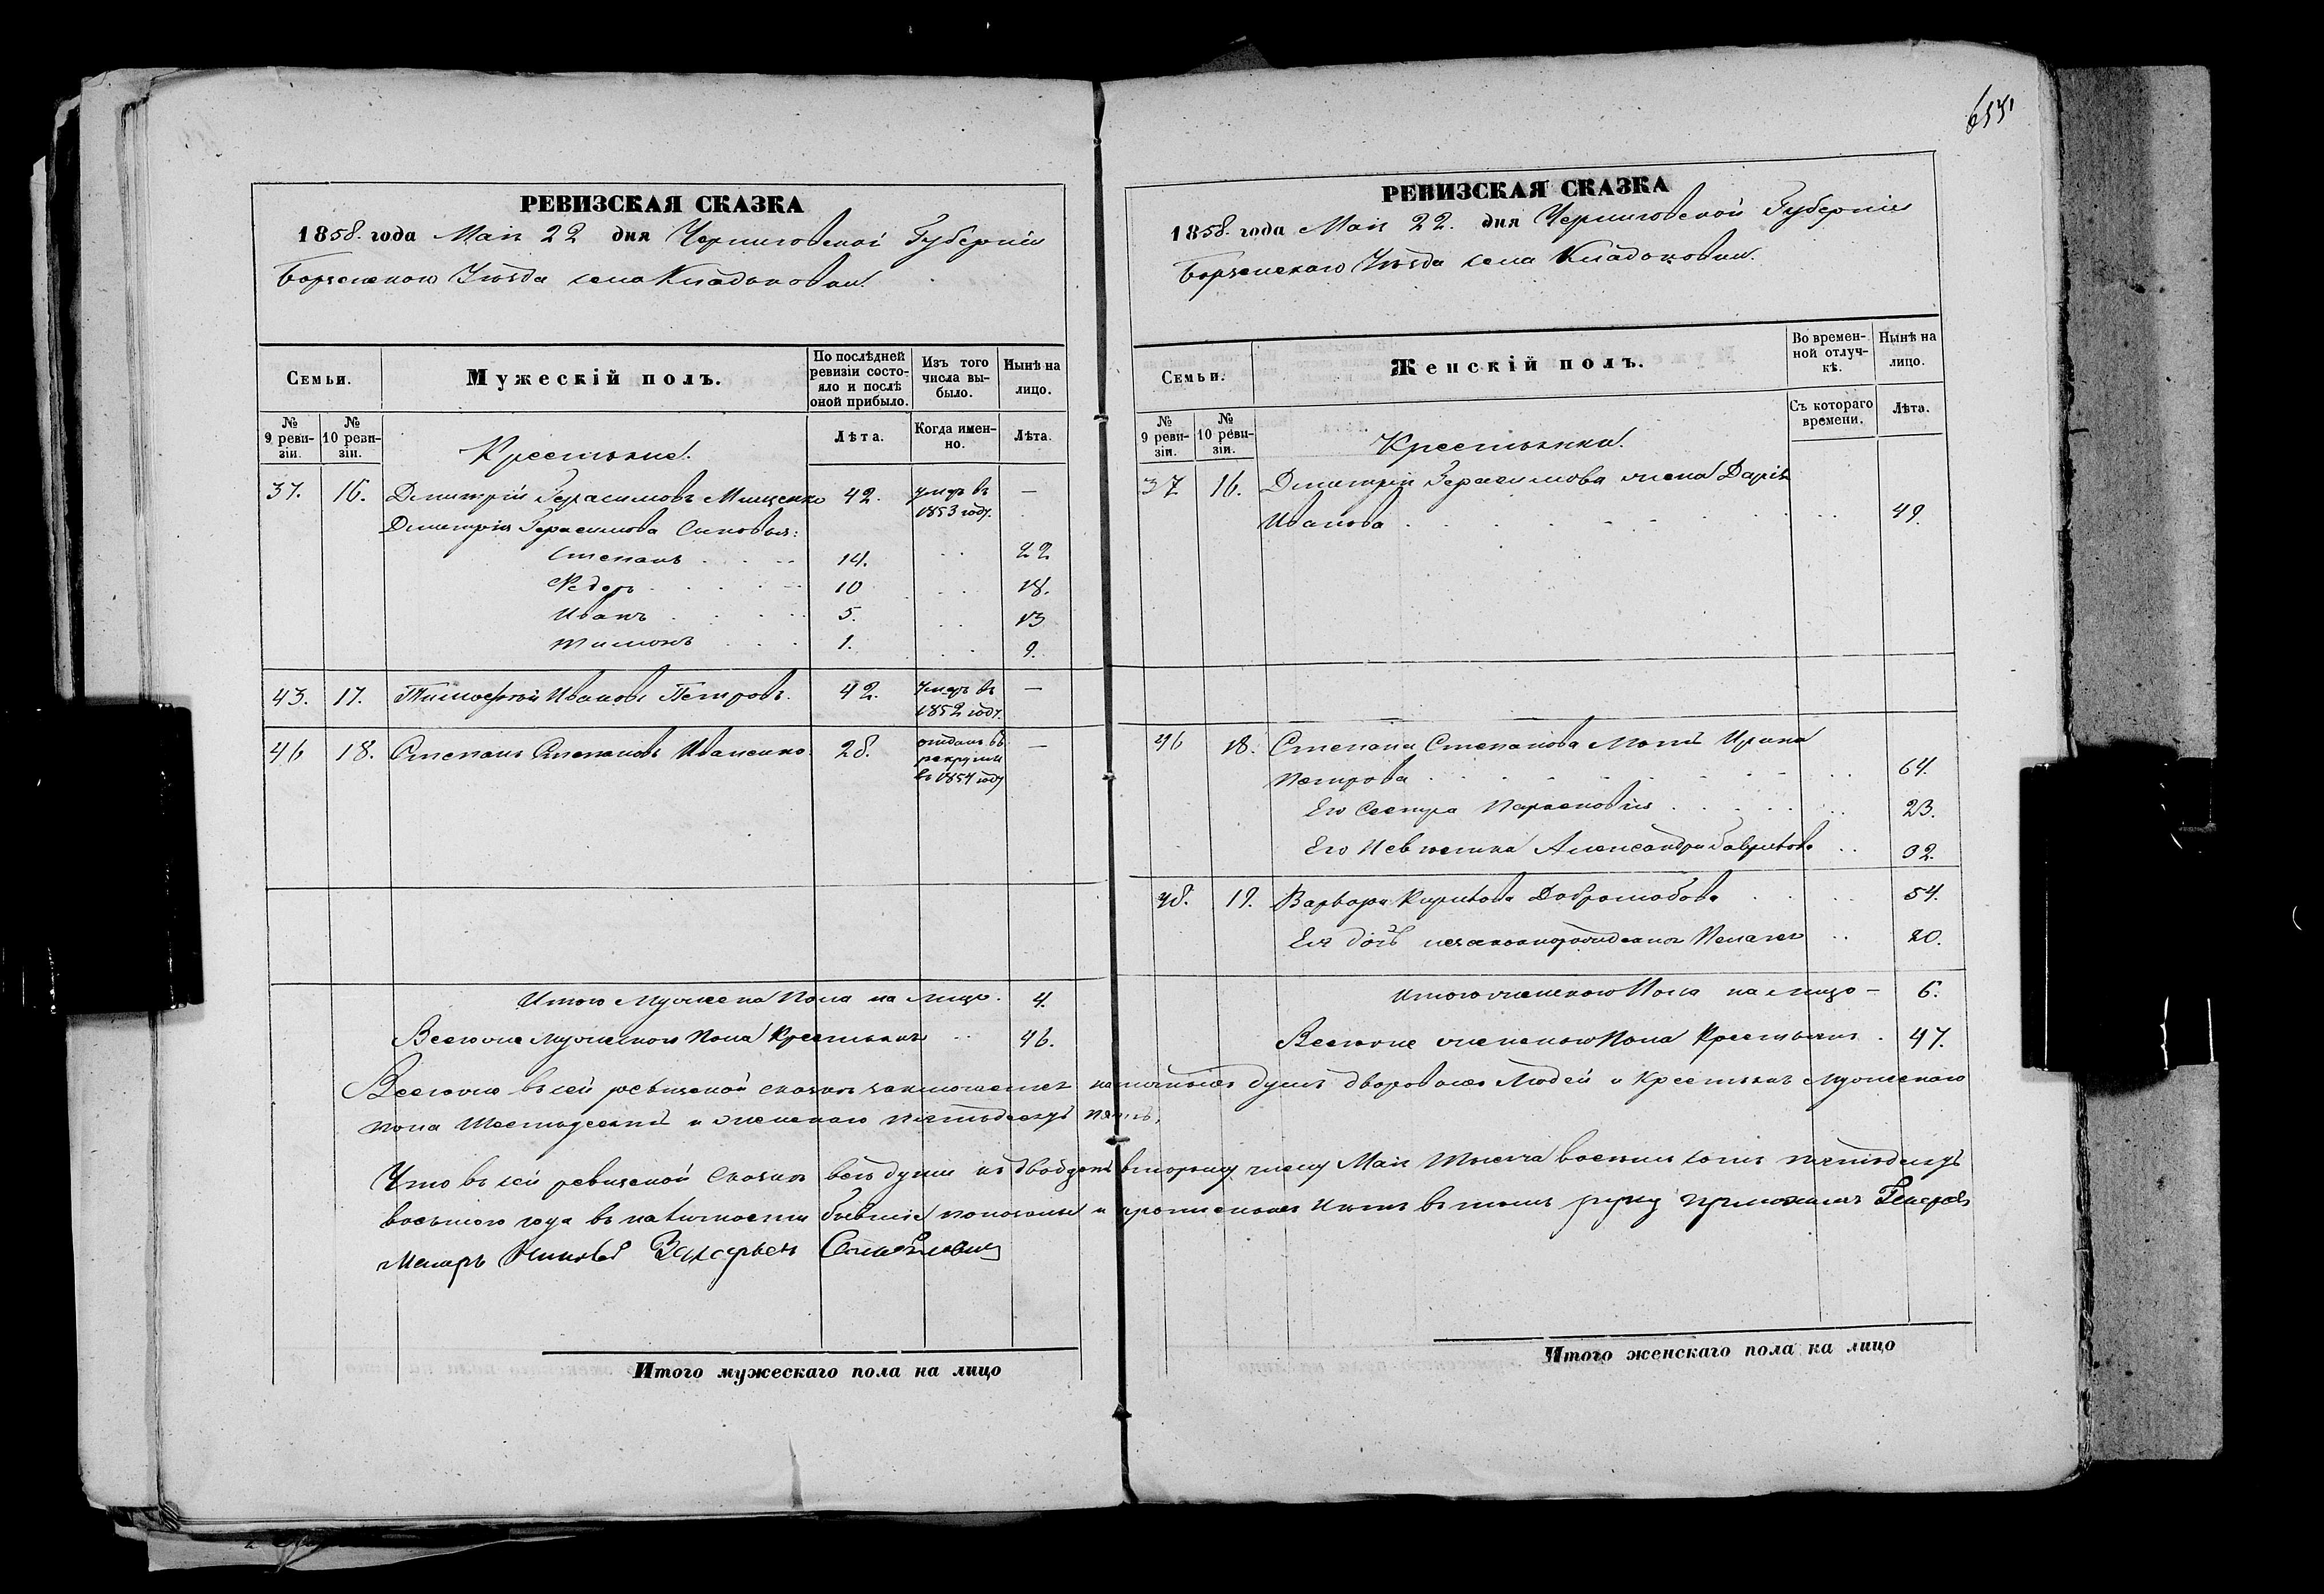 655
РЕВИЗСКАЯ СКАЗКА
1858. года Мая 22 дня Черниговской Губерніи
Борзенскаго Уѣзда села Кладьковки.
Семьи.
Мужескій полъ.
По послѣдней ревизіи состояло и послѣ оной прибыло.
Изъ того числа выбыло.
Нынѣ на лицо.
№ 9 ревизіи.
№ 10 ревизіи.
Лѣта.
Когда именно.
Лѣта.
Крестьяне.
37. 16. Дмитрій Герасимовъ Мищенко 42. умеръ въ 1853 году. —
Дмитрія Герасимова Сыновья:
Степанъ 14. 22
Федоръ 10 18.
Иванъ 5. 13
Тимонъ 1. 9.
43. 17. Тимофей Ивановъ Петровъ. 42. Умеръ въ 1852 году. —
46 18. Степанъ Степановъ Иваненко. 28. отданъ въ рекруты въ 1854 году —
Итого Мужеска Пола на лицо. 4.
Всего же мужескаго Пола Крестьянъ 46.
РЕВИЗСКАЯ СКАЗКА
1858. года Мая 22. дня Черниговской Губерніи
Борзенскаго Уѣзда села Кладьковки.
Семьи.
Женскій полъ.
Во временной отлучкѣ.
Нынѣ на лицо.
№ 9 ревизіи.
№ 10 ревизіи.
Съ котораго времени.
Лѣта.
Крестьянки.
37 16. Дмитрія Герасимова жена Дарія
Иванова 49.
46 18. Степана Степанова Мать Ирина
Петрова 64.
Его Сестра Парасковія 23.
Его Невѣстка Александра Гаврилова 32.
48. 19. Варвара Кирилова 54.
Ея дочь незаконнорожденная Пелагея 20.
Итого женскаго Пола на лицо — 6.
Всего же женскаго Пола Крестьянъ. 47.
Всего же въ сей ревизской сказкѣ заключается наличныхъ душъ дворовыхъ Людей и Крестьянъ Мужескаго
пола Шестьдесятъ и женскаго пятьдесятъ пять.
Что въ сей ревизской Сказкѣ всѣ души къ двадцать второму числу Мая Тысяча восемь сотъ пятьдесятъ
восьмаго года въ наличности бывшіе показаны и прописныхъ нѣтъ въ томъ руку приложилъ
Итого мужескаго пола на лицо
Итого женскаго пола на лицо